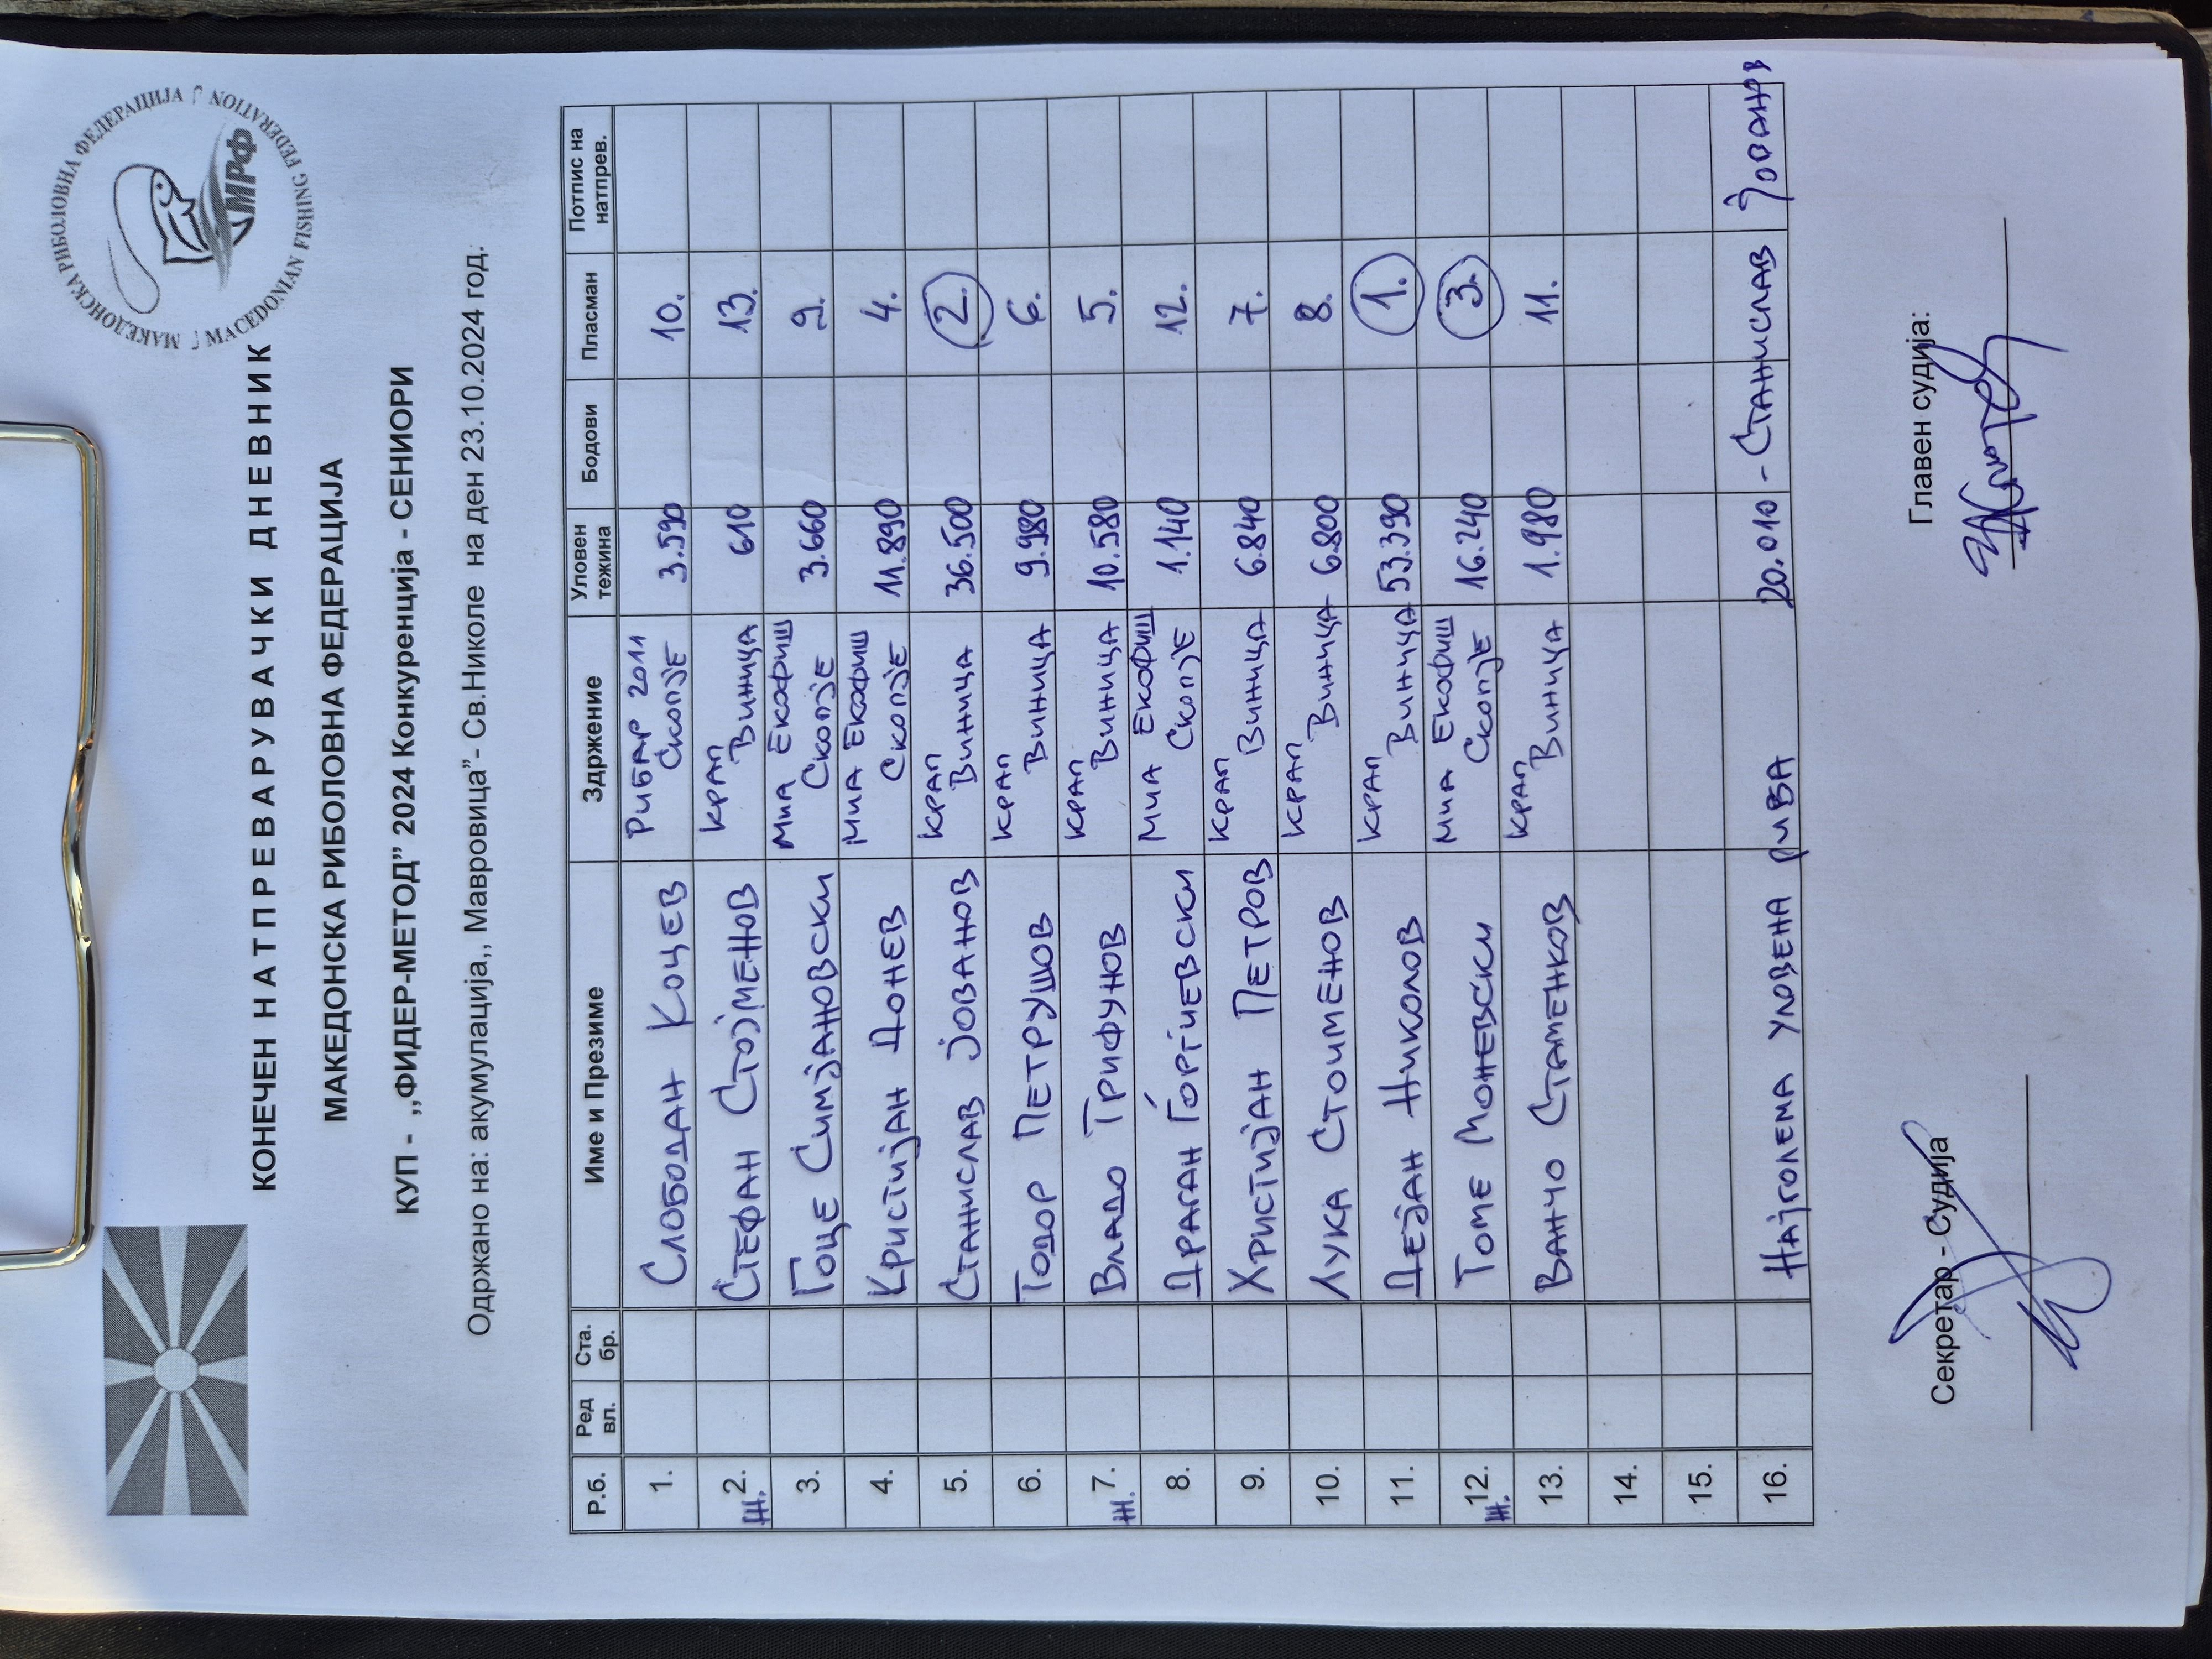 МАКЕДОНСКА РИБОЛОВНА ФЕДЕРАЦИЈА
MACEDONIAN FISHING FEDERATION
МРФ
КОНЕЧЕН НАТПРЕВАРУВАЧКИ ДНЕВНИК
МАКЕДОНСКА РИБОЛОВНА ФЕДЕРАЦИЈА
КУП - ,,ФИДЕР-МЕТОД” 2024 Конкуренција - СЕНИОРИ
Одржано на: акумулација,, Мавровица”- Св.Николе на ден 23.10.2024 год.
Р.б. Ред вл. Ста. бр. Име и Презиме Здржение Уловен тежина Бодови Пласман Потпис на натпрев.
1. Слободан Коцев Рибар 2011 Скопје 3.590 10.
2. Ж. Стефан Стојменов Крап Виница 610 13.
3. Гоце Симјановски Миа Екофиш Скопје 3.660 9.
4. Кристијан Донев Миа Екофиш Скопје 11.890 4.
5. Станислав Јованов Крап Виница 36.500 2.
6. Тодор Петрушов Крап Виница 9.980 6.
7. Ж. Владо Трифунов Крап Виница 10.580 5.
8. Драган Ѓорѓиевски Миа Екофиш Скопје 1.140 12.
9. Христијан Петров Крап Виница 6.840 7.
10. Лука Стоименов Крап Виница 6.800 8.
11. Дејан Николов Крап Виница 53.390 1.
12. Ж. Томе Моневски Миа Екофиш Скопје 16.240 3.
13. Ванчо Стаменков Крап Виница 1.980 11.
14.
15.
16. Најголема уловена риба 20.010 - Станислав Јованов
Секретар - Судија
Главен судија: